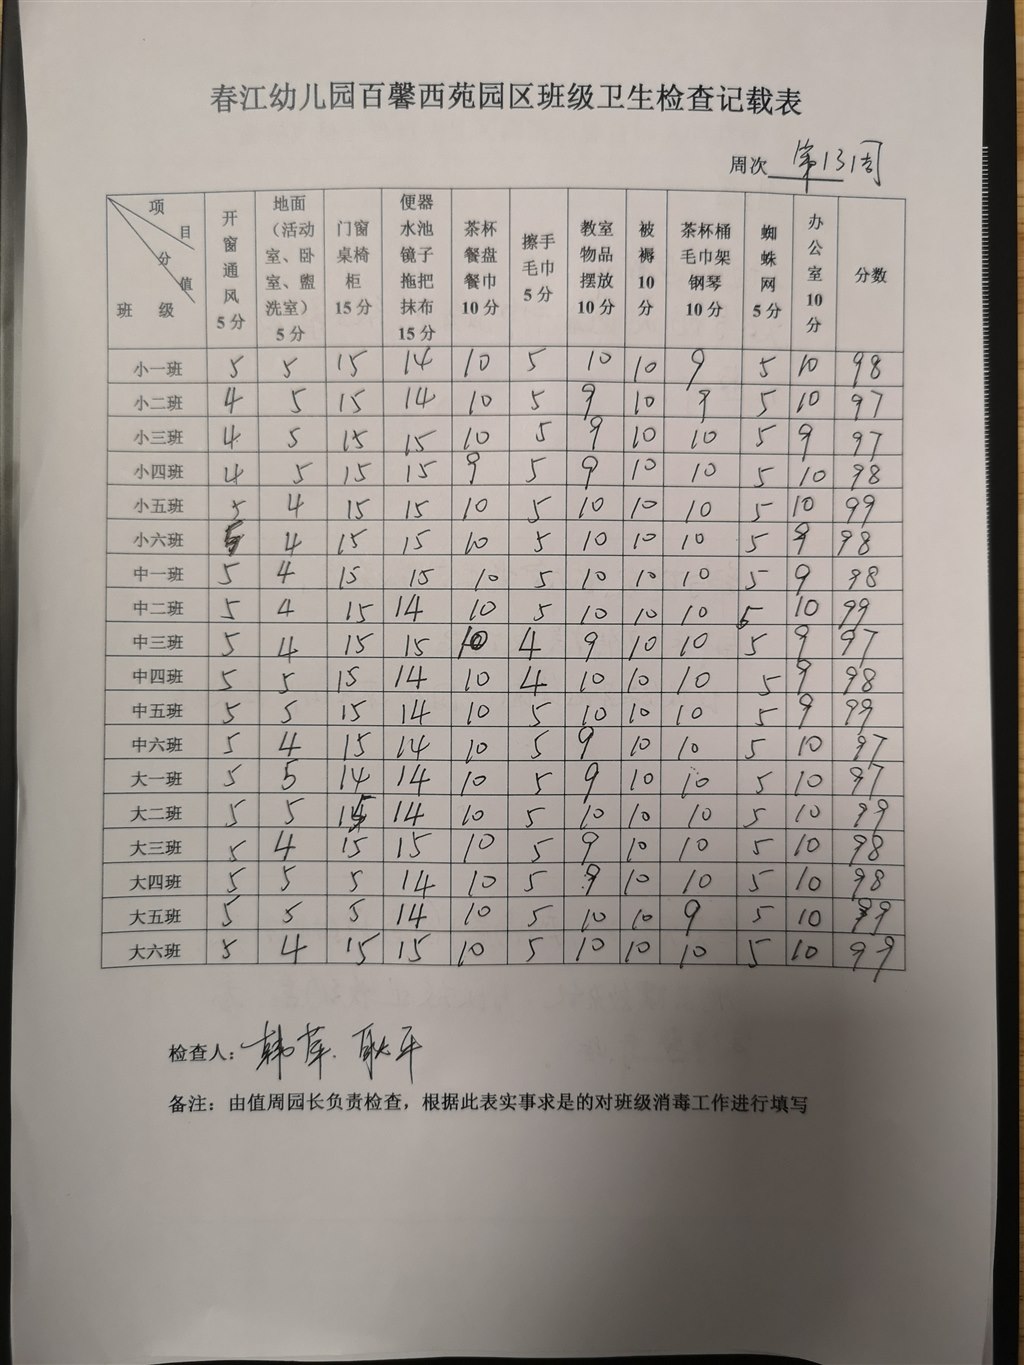 春江幼儿园百馨西苑园区班级卫生检查记载表
周次 第13周
项目 分值 班级 开窗通风5分 地面（活动室、卧室、盥洗室）5分 门窗桌椅柜15分 便器水池镜子拖把抹布15分 茶杯餐盘餐巾10分 擦手毛巾5分 教室物品摆放10分 被褥10分 茶杯桶毛巾架钢琴10分 蜘蛛网5分 办公室10分 分数
小一班 5 5 15 14 10 5 10 10 9 5 10 98
小二班 4 5 15 14 10 5 9 10 9 5 10 97
小三班 4 5 15 15 10 5 9 10 10 5 9 97
小四班 4 5 15 15 9 5 9 10 10 5 10 98
小五班 5 4 15 15 10 5 10 10 10 5 10 99
小六班 5 4 15 15 10 5 10 10 10 5 9 98
中一班 5 4 15 15 10 5 10 10 10 5 9 98
中二班 5 4 15 14 10 5 10 10 10 5 10 99
中三班 5 4 15 15 10 4 9 10 10 5 9 97
中四班 5 5 15 14 10 4 10 10 10 5 9 98
中五班 5 5 15 14 10 5 10 10 10 5 9 99
中六班 5 4 15 14 10 5 9 10 10 5 10 97
大一班 5 5 14 14 10 5 9 10 10 5 10 97
大二班 5 5 15 14 10 5 10 10 10 5 10 99
大三班 5 4 15 15 10 5 9 10 10 5 10 98
大四班 5 5 5 14 10 5 9 10 10 5 10 98
大五班 5 5 5 14 10 5 10 10 9 5 10 99
大六班 5 4 15 15 10 5 10 10 10 5 10 99
检查人：韩萍. 耿平
备注：由值周园长负责检查，根据此表实事求是的对班级消毒工作进行填写